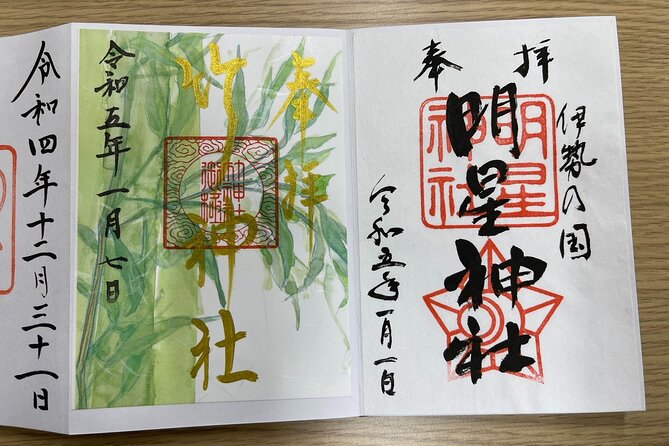 奉拝
伊勢の国
明星神社
明星神社
令和五年一月一日
奉拝
竹神社
令和五年一月七日
令和四年十二月三十一日